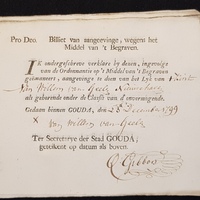 Pro Deo. Billet van aangeevinge, wegens het
Middel van 't Begraven.
IK ondergeschreve verklare by desen, ingevolge
van de Ordonnantie op 't Middel van 't Begraven
geëmaneert, aangevinge te doen van het Lyk van
van Willem van Geelen
als gehorende onder de Classis van d'onvermogende.
Gedaan binnen GOUDA, den 28 December 1799
X
van Willem van Geelen
Ter Secretarye der Stad GOUDA,
getekent op datum als boven.